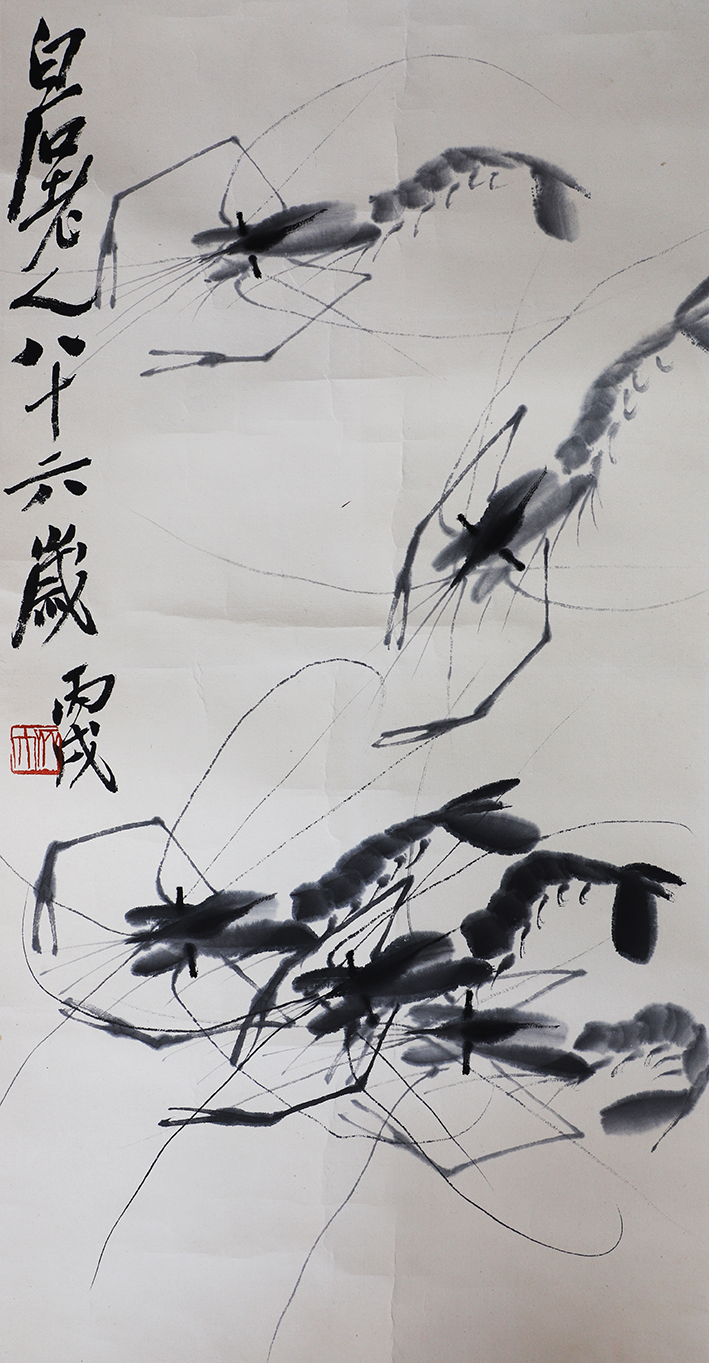 白石老人八十六歲
丙戌